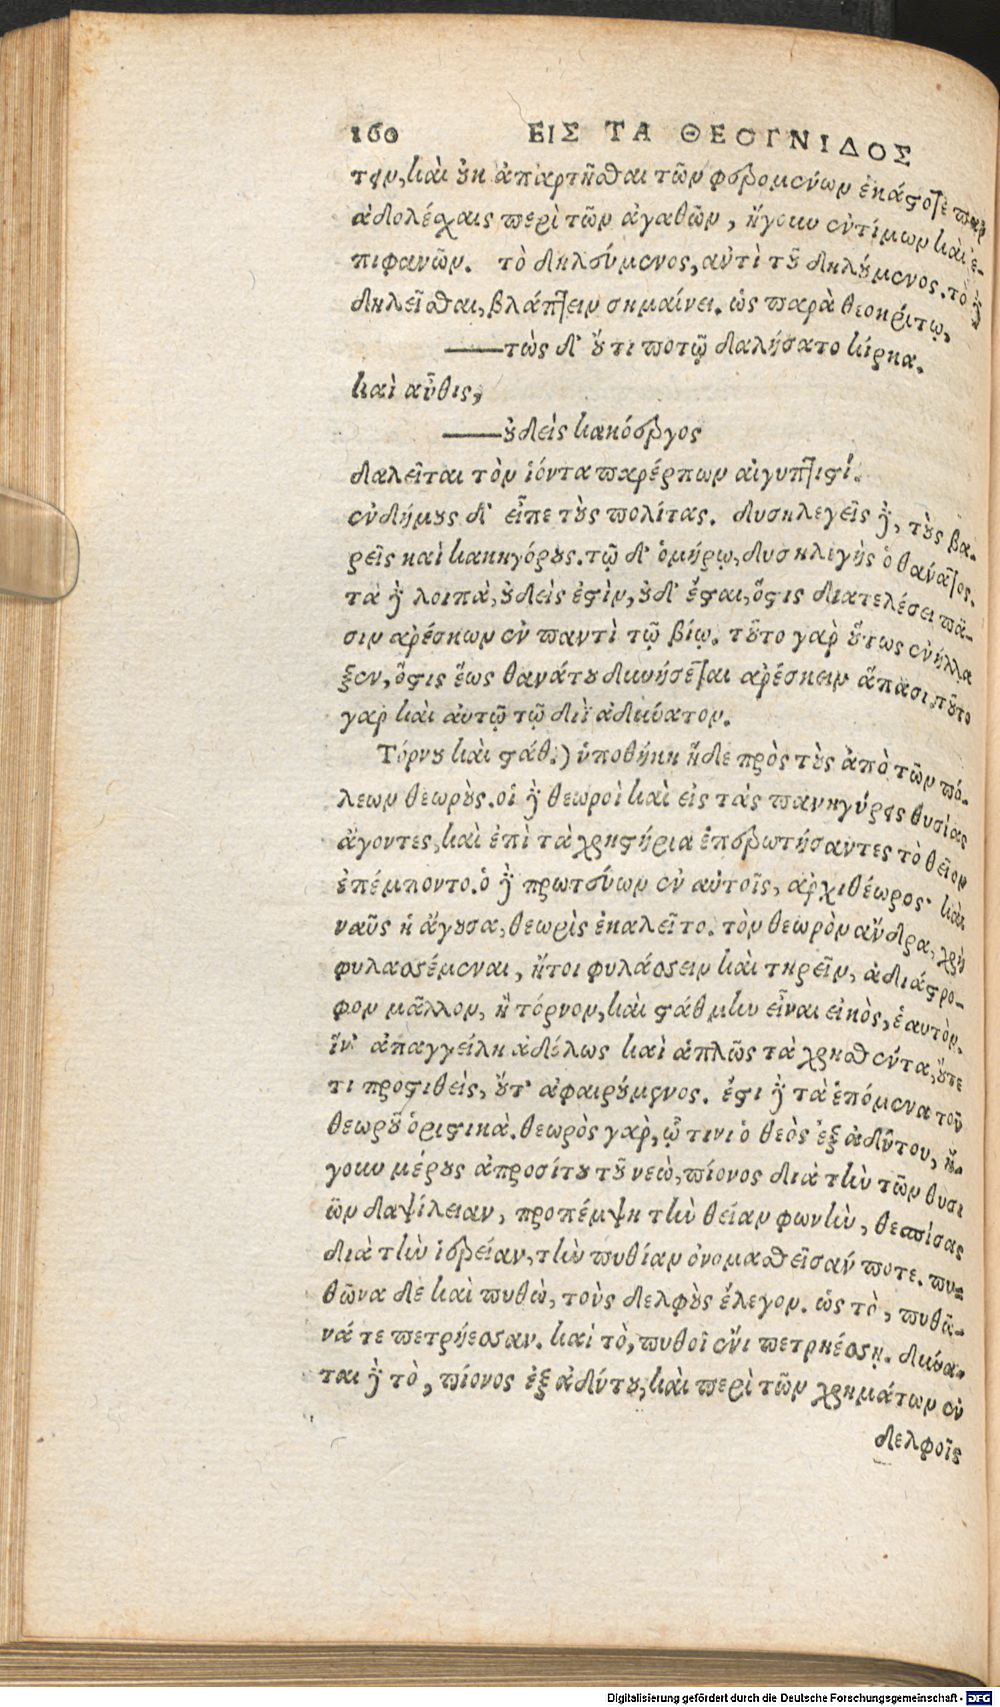 160 ΕΙΣ ΤΑ ΘΕΟΓΝΙΔΟΣ
τειν, καὶ οὐκ ἀπαρτῆσθαι τῶν φερομένων ἑκάστοτε παρ
ἀδολέσχαις περὶ τῶν ἀγαθῶν, ἤγουν ἐντίμων καὶ ἐ-
πιφανῶν. τὸ δηλεύμενος, ἀντὶ τοῦ δηλούμενος. τὸ δὲ
δηλεῖσθαι, βλάπτειν σημαίνει. ὡς παρὰ θεοκρίτῳ,
——τὼς δ' οὔ τι ποτῷ δαλήσατο κίρκα.
καὶ αὖθις,
——οὐδεὶς κακόεργος
δαλεῖται τὸν ἰόντα παρέρπων αἰγυπτιστί.
ἐνδήμους δ' εἶπε τοὺς πολίτας. δυσηλεγεῖς δὲ, τοὺς βα-
ρεῖς καὶ κακηγόρους. τῷ δ' ὁμήρῳ, δυσηλεγὴς ὁ θάνατος.
τὰ δὲ λοιπὰ, οὐδεὶς ἐστὶν, οὐδ' ἔσται, ὅστις διατελέσει πᾶ-
σιν ἀρέσκων ἐν παντὶ τῷ βίῳ. τοῦτο γὰρ οὕτως ἐνήλλα
ξεν, ὅστις ἕως θανάτου δυνήσεται ἀρέσκειν ἅπασι, τοῦτο
γὰρ καὶ αὐτῷ τῷ διῒ ἀδύνατον.
Τόρνου καὶ στάθ.) ὑποθήκη ἥδε πρὸς τοὺς ἀπὸ τῶν πό-
λεων θεωροὺς. οἱ δὲ θεωροὶ καὶ εἰς τὰς πανηγύρεις θυσίας
ἄγοντες, καὶ ἐπὶ τὰ χρηστήρια ἐπερωτήσαντες τὸ θεῖον
ἐπέμποντο. ὁ δὲ πρωτεύων ἐν αὐτοῖς, ἀρχιθέωρος· καὶ
ναῦς ἡ ἄγουσα, θεωρὶς ἐκαλεῖτο. τὸν θεωρὸν ἄνδρα, χρὴ
φυλασσέμεναι, ἤτοι φυλάσσειν καὶ τηρεῖν, ἀδιάστρο-
φον μᾶλλον, ἢ τόρνον, καὶ στάθμην εἶναι εἰκὸς, ἑαυτὸν.
ἵν' ἀπαγγείλῃ ἀδόλως καὶ ἁπλῶς τὰ χρησθέντα, οὔτε
τι προστιθεὶς, οὔτ' ἀφαιρούμενος. ἔστι δὲ τὰ ἑπόμενα τοῦ
θεωροῦ ὁριστικὰ. θεωρὸς γὰρ, ᾧ τινι ὁ θεὸς ἐξ ἀδύτου, ἤ-
γουν μέρους ἀπροσίτου τοῦ νεὼ, πίονος διὰ τὴν τῶν θυσι
ῶν δαψίλειαν, προπέμψῃ τὴν θείαν φωνὴν, θεσπίσας
διὰ τὴν ἱέρειαν, τὴν πυθίαν ὀνομασθεῖσάν ποτε. πυ-
θῶνα δὲ καὶ πυθὼ, τοὺς δελφοὺς ἔλεγον. ὡς τὸ, πυθῶ-
νά τε πετρήεσσαν. καὶ τὸ, πυθοῖ ἔνι πετρηέσσῃ. δύνα-
ται δὲ τὸ, πίονος ἐξ ἀδύτου, καὶ περὶ τῶν χρημάτων ἐν
δελφοῖς
Digitalisierung gefördert durch die Deutsche Forschungsgemeinschaft - DFG